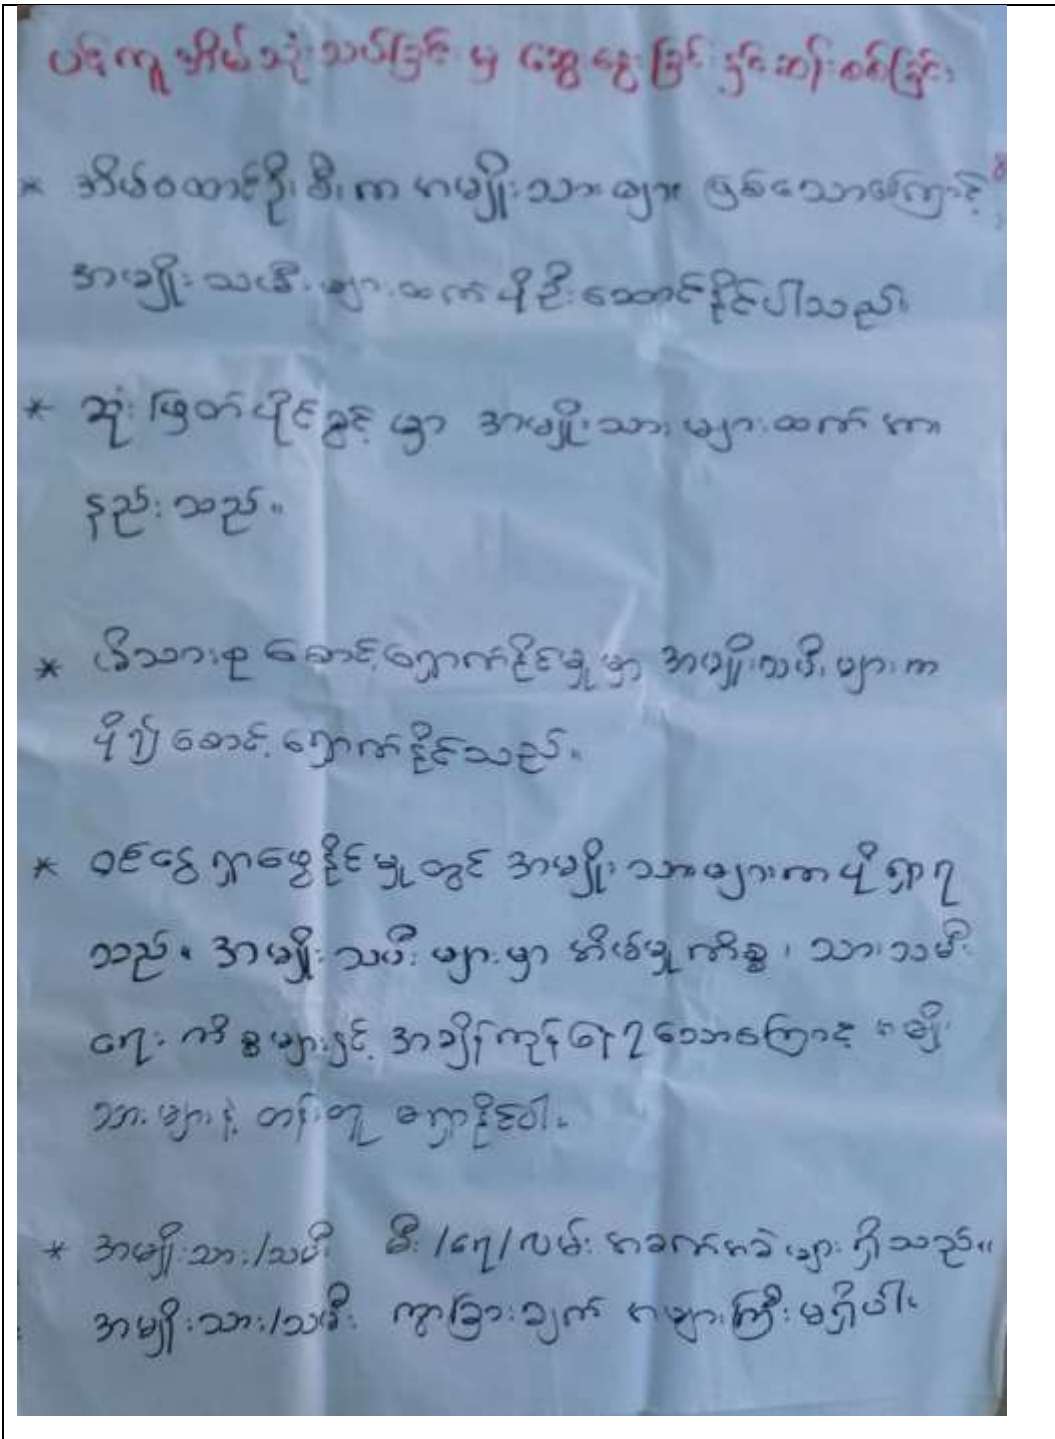 ပင့်ကူအိမ်သုံးသပ်ခြင်းမှ ဆွေးနွေးခြင်းနှင့်ဆန်းစစ်ခြင်း
* အိမ်ထောင်ဦးစီးက အမျိုးသားများ ဖြစ်သောကြောင့်
အမျိုးသမီးများထက် ပိုဦးဆောင်နိုင်ပါသည်။
* ဆုံးဖြတ်ပိုင်ခွင့်မှာ အမျိုးသားများထက်
နည်းသည်။
* မိသားစု စောင့်ရှောက်နိုင်မှုမှာ အမျိုးသမီးများက
ပို၍ စောင့်ရှောက်နိုင်သည်။
* ဝင်ငွေရှာဖွေနိုင်မှုတွင် အမျိုးသားများက ပိုရှာရ
သည်။ အမျိုးသမီးများမှာ အိမ်မှုကိစ္စ၊ သားသမီး
ရေးကိစ္စများနှင့် အချိန်ကုန်နေရသောကြောင့် အမျိုး
သားများနဲ့ တန်းတူ မရှာနိုင်ပါ။
* အမျိုးသား/သမီး မီး/ရေ/လမ်း အခက်အခဲများ ရှိသည်။
အမျိုးသား/သမီး ကွာခြားချက် အများကြီးမရှိပါ။